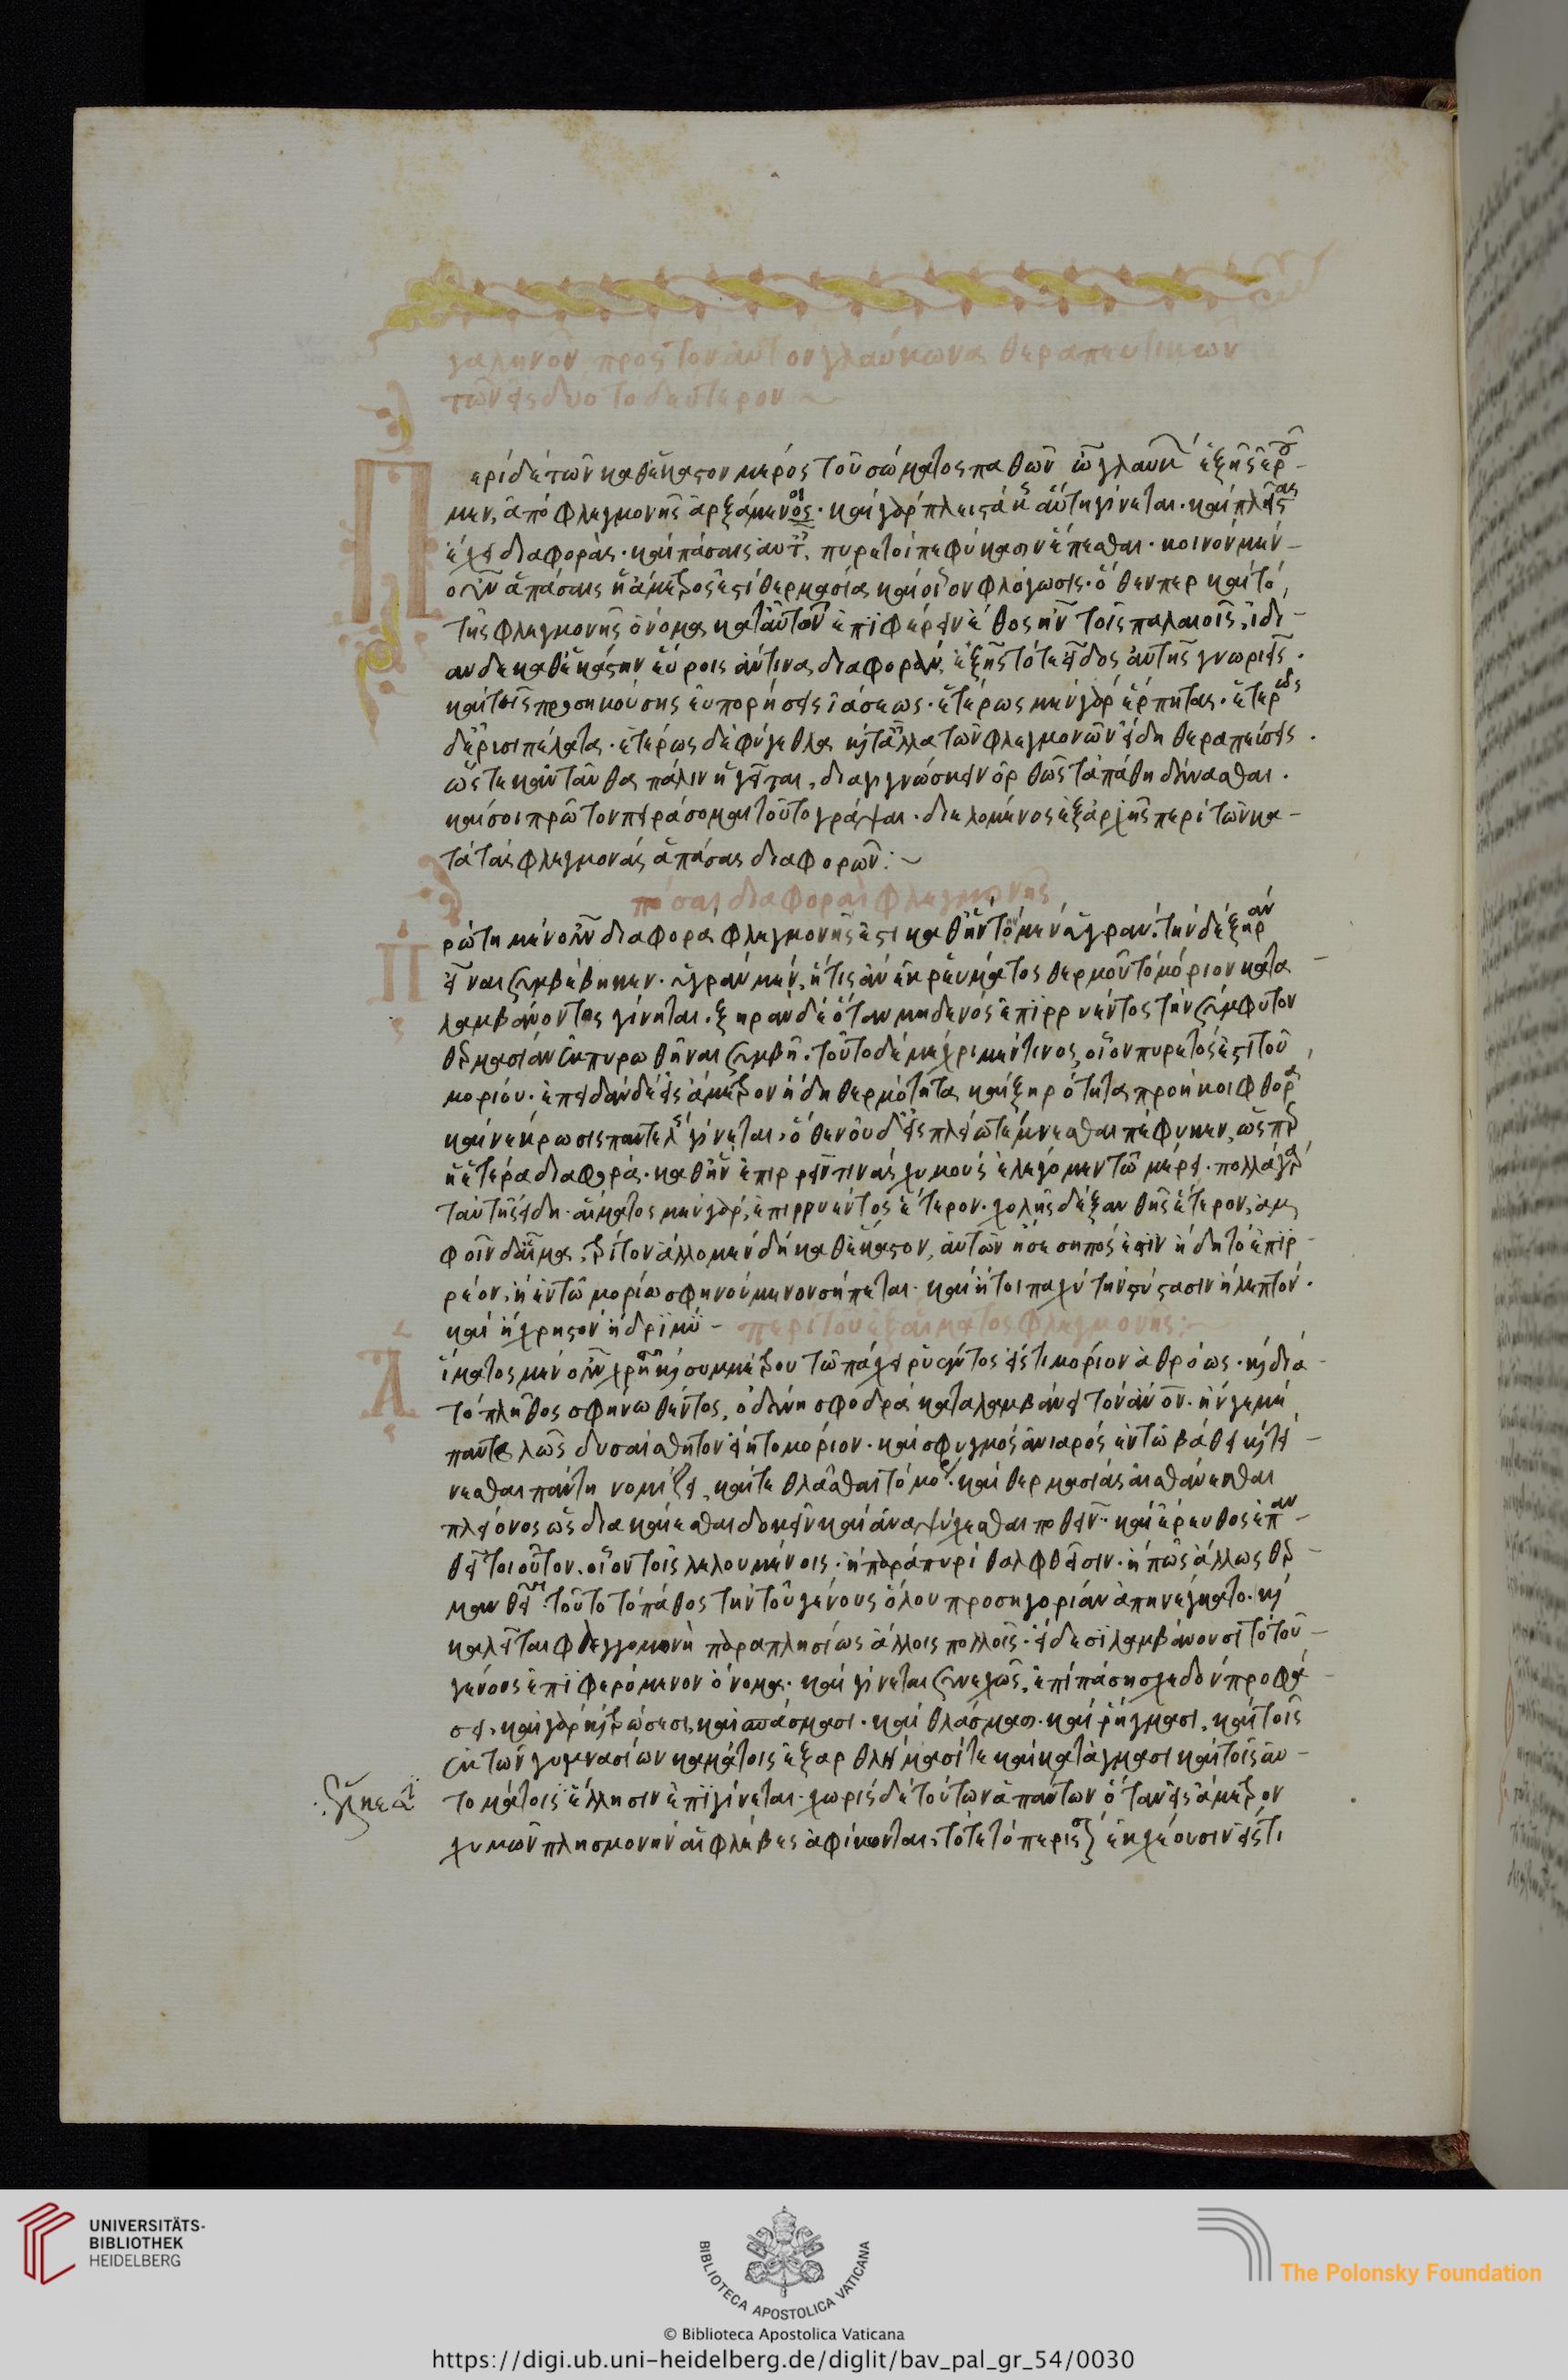 γαληνοῦ προς τον αὐτον γλαύκωνα θεραπευτικῶν
τῶν εἰς δυο το δεύτερον
Περὶ δὲ τῶν καθ' ἕκαστον μέρος τοῦ σώματος παθῶν ὦ γλαύκ ἑξῆς ἐρου-
μεν, ἀπὸ φλεγμονῆς ἀρξάμενος· καὶ γὰρ πλειστάκις αὕτη γίνεται· καὶ πλείστας
ἔχει διαφορὰς· καὶ πάσαις αυτ πυρετοὶ πεφύκασιν ἕπεσθαι· κοινὸν μὲν
οὖν ἁπάσαις ἡ ἄμετρος ἐστὶ θερμασία καὶ οἷον φλόγωσις· ὅθεν περ καὶ τὸ
τῆς φλεγμονῆς ὄνομα κατ' αὐτῶν ἐπιφέρειν ἔθος ἦν τοῖς παλαιοῖς, ἰδί-
αν δε καθ' ἑκάστην εὕροις ἄν τινα διαφορὰν, ἑξῆς τό τε εἶδος αὐτῆς γνωριεῖς·
καὶ τῆς προσηκούσης εὐπορήσεις ἰάσεως· ἑτέρως μὲν γὰρ ἕρπητας· ἑτέρως
δ' ἐρισιπέλατα· ἑτέρως δὲ φύγεθλα καὶ τἄλλα τῶν φλεγμονῶν εἴδη θεραπεύσεις·
ὥστε κἀνταῦθα πάλιν ἡγεῖται, διαγιγνώσκειν ὀρθῶς τὰ πάθη δύνασθαι·
καί σοι πρῶτον πειράσομαι τοῦτο γράψαι· διελομένος ἐξ ἀρχῆς περὶ τῶν κα-
τὰ τὰς φλεγμονὰς ἁπάσας διαφορῶν:~
πόσαι διαφοραὶ φλεγμονῆς
Πρώτη μὲν οὖν διαφορὰ φλεγμονῆς ἐστι καθ' ἣν τὸ μὲν ὑγρὰν, τὴν δὲ ξηρὰν
εἶναι συμβέβηκεν· ὑγρὰν μὲν, ἥτις ἂν ἐκ ῥεύματος θερμοῦ τὸ μόριον κατα
λαμβάνοντος γίνηται· ξηρὰν δὲ ὅταν μηδενὸς ἐπιρρυέντος τὴν σύμφυτον
θερμασίαν ἐκπυρωθῆναι συμβῆ· τοῦτο δὲ μέχρι μέν τινος, οἷον πυρετός ἐστι τοῦ
μορίου· ἐπειδὰν δὲ εἰς ἄμετρον ἤδη θερμότητα καὶ ξηρότητα προήκοι φθορὰ
καὶ νέκρωσις παντελὴς γίνεται, ὅθεν οὐδ' εἰς πλείω τέμνεσθαι πέφυκεν, ὥσπερ
ἡ ἑτέρα διαφορὰ· καθ' ἣν ἐπιρρεῖν τινὰς χυμοὺς ἐλέγομεν τῶ μέρει· πολλὰ γὰρ
ταύτης εἴδη· αἵματος μὲν γὰρ, ἐπιρρυέντος ἕτερον· χολῆς δὲ ξανθῆς ἕτερον, ἀμ
φοῖν δ' ἅμα, τρίτον ἄλλο μὲν δὴ καθ' ἕκαστον, αὐτῶν ἢ σεσηπός ἐστιν ἤδη τὸ ἐπιρ-
ρέον, ἢ ἐν τῶ μορίω σφηνούμενον σήπεται· καὶ ἤτοι παχὺ τὴν σύστασιν ἢ λεπτόν·
καὶ ἢ χρηστὸν ἢ δριμύ – περὶ τοῦ ἐξ αἵματος φλεγμονῆς:~
Αἵματος μὲν οὖν χρηστοῦ καὶ συμμέτρου τῶ πάχει ῥυέντος εἴς τι μόριον ἀθρόως· καὶ διὰ
τὸ πλῆθος σφηνωθέντος, ὀδύνη σφοδρὰ καταλαμβάνει τὸν ἄνον· ἤν γε μὴ
παντελῶς δυσαίσθητον εἴη το μόριον· καὶ σφυγμὸς ἀνιαρὸς ἐν τῶ βάθει καὶ τεί-
νεσθαι πάντη νομίζει, καί τε θλᾶσθαι τὸ μορ· καὶ θερμασίας αἰσθάνεσθαι
πλείονος ὡς διακαίεσθαι δοκεῖν καὶ ἀναψύχεσθαι ποθεῖν· καὶ ἔρευθος ἐπαν-
θεῖ τοιοῦτον, οἷον τοῖς λελουμένοις· ἢ παρὰ πυρὶ θαλφθεῖσιν· ἢ πῶς ἄλλως θερ-
μανθεῖσι· τοῦτο τὸ πάθος τὴν τοῦ γένους ὅλου προσηγορίαν ἀπηνέγκατο· καὶ
καλεῖται φλεγμονὴ παραπλησίως ἄλλοις πολλοῖς· εἴδεσι λαμβάνουσι τὸ τοῦ
γένους ἐπιφερόμενον ὄνομα· καὶ γίνεται συνεχῶς, ἐπὶ πάση σχεδὸν προφά-
σει, καὶ γὰρ καὶ τρώσεσι, καὶ σπάσμασι· καὶ θλάσμασι· καὶ ῥήγμασι, καὶ τοῖς
ἐκ τῶν γυμνασίων καμάτοις ἐξαρθλήμασί τε καὶ κατάγμασι καὶ τοῖς αὐ-
τομάτοις ἕλκεσιν ἐπιγίνεται· χωρὶς δὲ τούτων ἁπάντων ὅταν εἰς ἄμετρον
χυμῶν πλησμονὴν αἱ φλέβες ἀφίκωνται, τότε τὸ περισσὸν ἐκχέουσιν εἴς τι
UNIVERSITÄTS-
BIBLIOTHEK
HEIDELBERG
BIBLIOTECA APOSTOLICA VATICANA
The Polonsky Foundation
© Biblioteca Apostolica Vaticana
https://digi.ub.uni-heidelberg.de/diglit/bav_pal_gr_54/0030